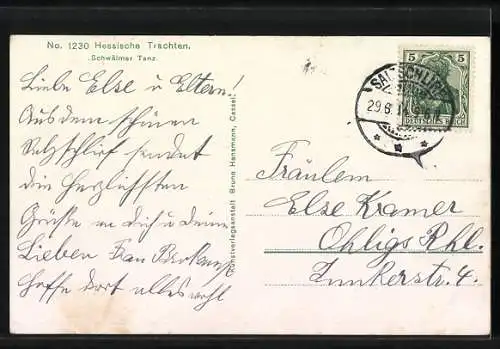 No. 1230 Hessische Trachten.
Schwälmer Tanz.
Liebe Else u Eltern!
Aus dem schönen
Salzschlirf sendet
die herzlichsten
Grüße an dich u deine
Lieben Frau
hoffe dort alles wohl
Kunstverlagsanstalt Bruno Hansmann, Cassel.
5 5
DEUTSCHES REICH
SALZSCHLIRF
29.6.14
Fräulein
Else Kramer
Ohligs Rhl.
Junkerstr. 4.